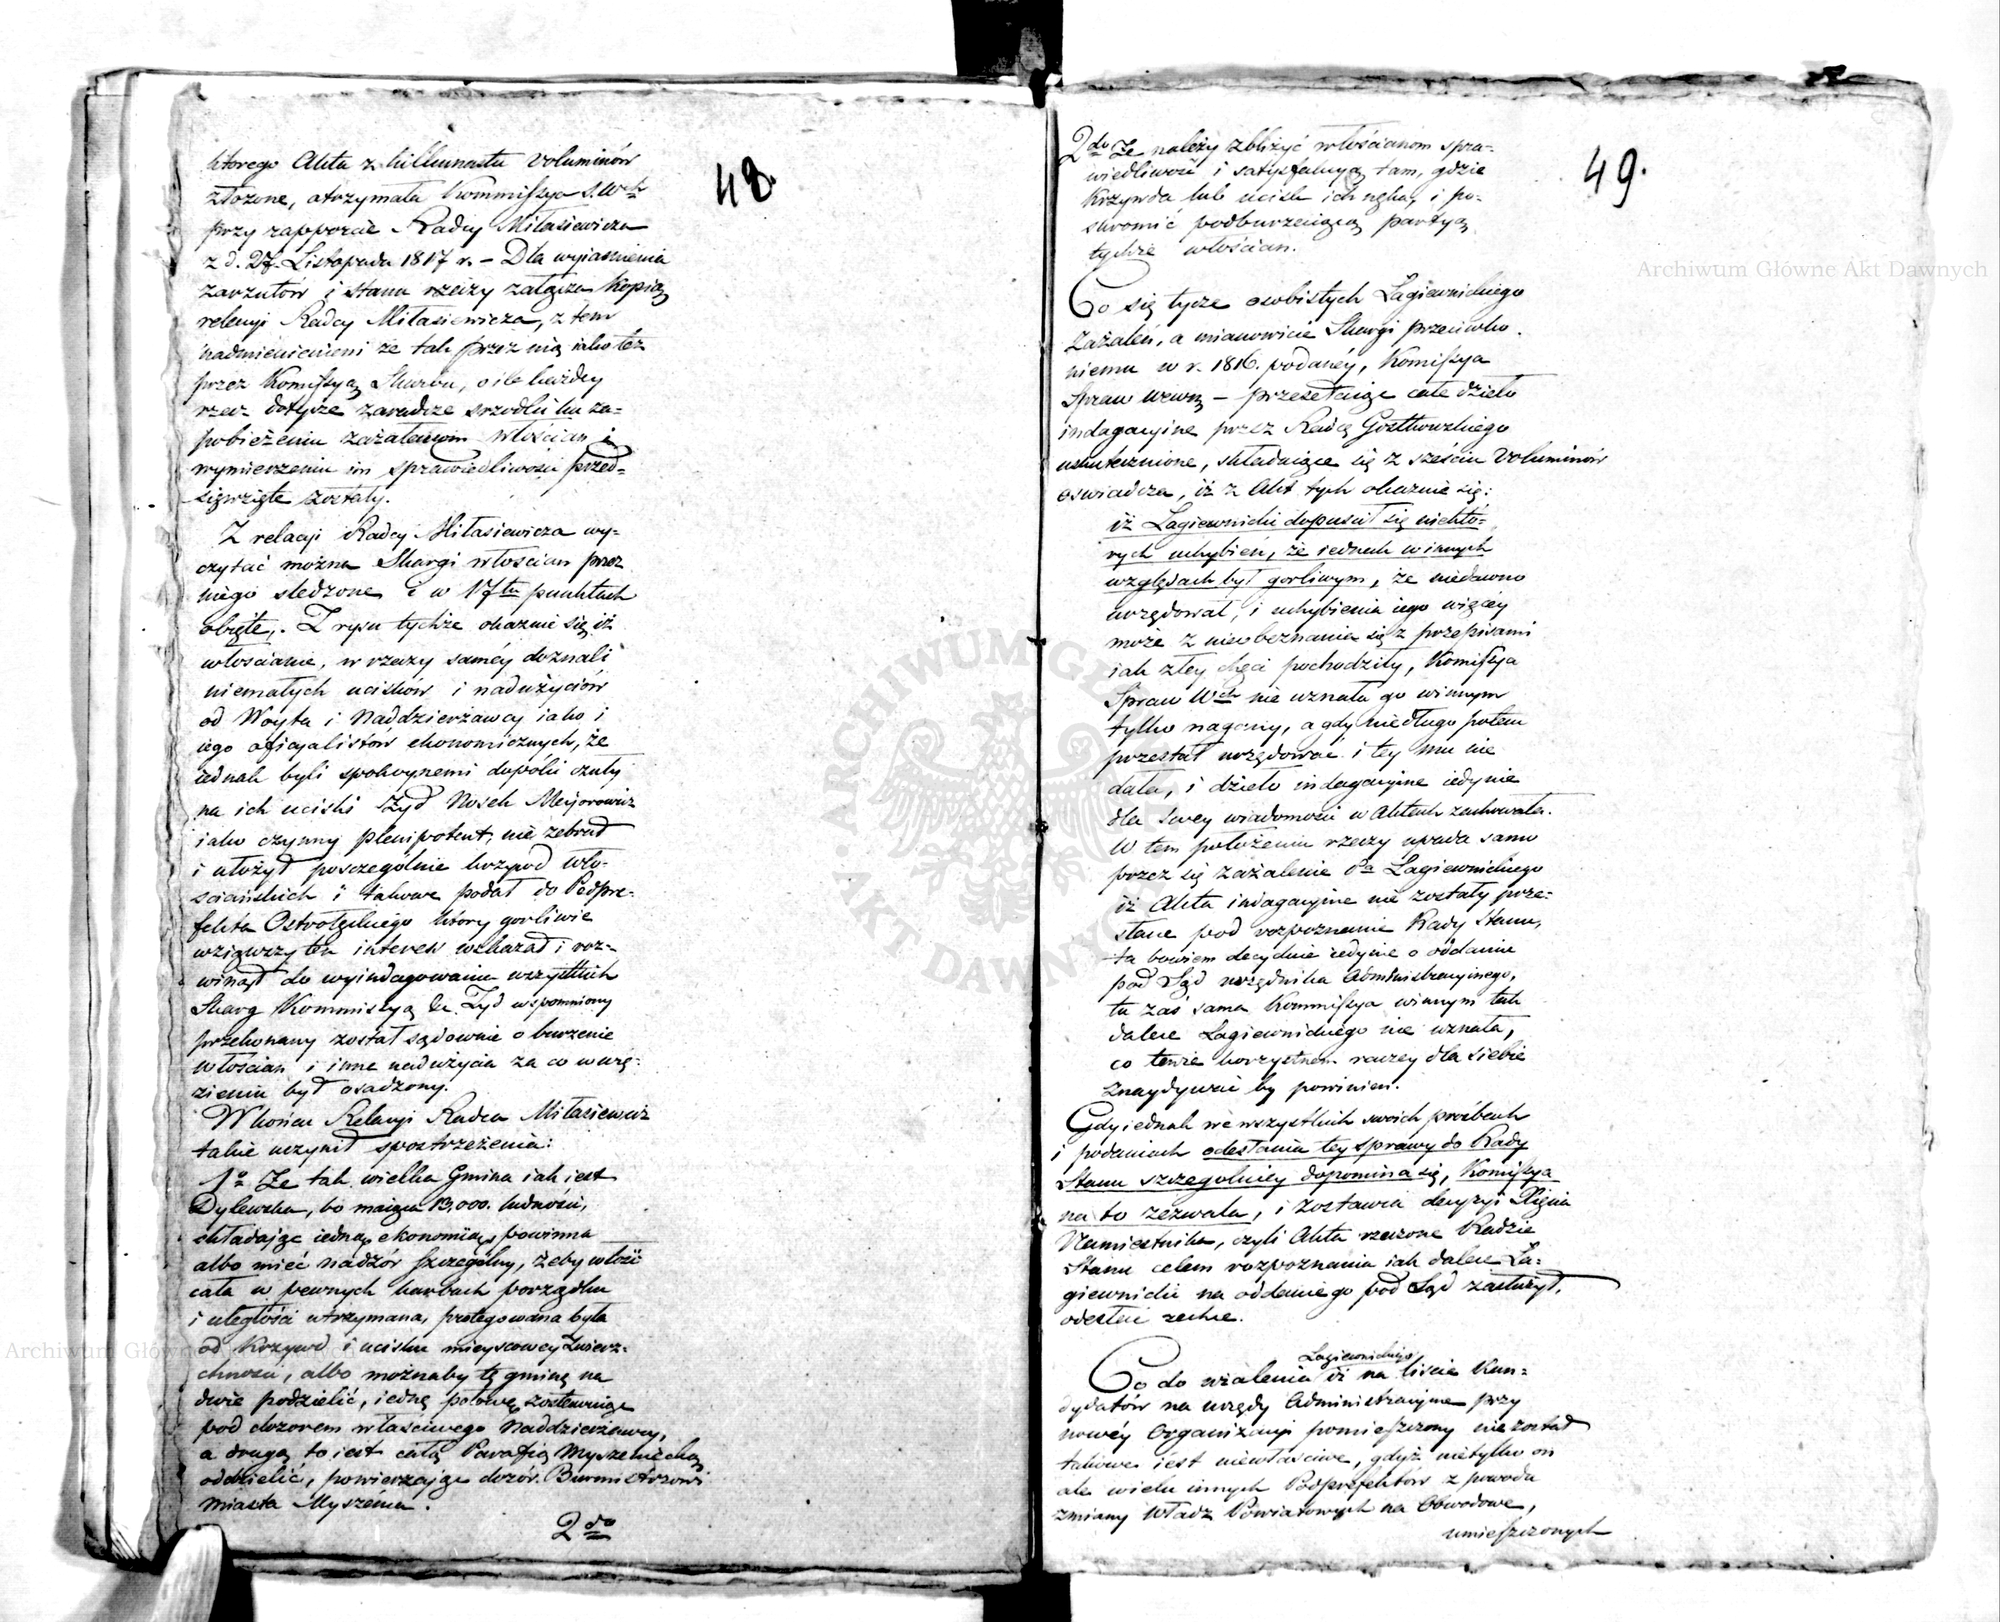 48.
ktorego Akta z kilkunastu voluminów
złożone, otrzymała Kommissya S. Wch
przy rapporcie Radcy Miłasiewicza
z d. 27. Listopada 1817 r. – Dla wyiaśnienia
zarzutów i stanu rzeczy załącza kopią
relacyi Radcy Miłasiewicza, z tem
nadmienieniem że tak przez nią iako też
przez Komissyą Skarbu, o ile każdey
rzecz dotycze zaradcze srzodki ku za-
pobieżeniu zażaleniom włościan i
wymierzeniu im sprawiedliwości przed-
sięwzięte zostały.
Z relacyi Radcy Miłasiewicza wy-
czytać można Skargi włościan przez
niego sledzone i w 17tu punktach
obięte. Z rysu tychże okazuie się iż
włościanie, w rzeczy saméy doznali
niemałych ucisków i nadużyciów
od Woyta i Naddzierżawcy iako i
iego oficyalistów ekonomicznych, że
iednak byli spokoynemi dopóki czuły
na ich uciski Żyd Nosek Meyorowicz
iako czynny plenipotent, nie zebrał
i ułożył poszczególnie krzywd wło-
sciańskich i takowe podał do Podpre-
fekta Ostrołęckiego który gorliwie
wziąwszy ten interess wskazał i roz-
winął do wyindagowania wszystkich
Skarg Kommissyą &c. Żyd wspomniony
przekonany został sądownie o burzenie
włościan i inne nadużycia za co w wię-
zieniu był osadzony.
W końcu Relacyi Radca Miłasiewicz
takie uczynił spostrzeżenia:
1o Że tak wielka Gmina iak iest
Dylewska, bo maiąca 13,000. ludności,
składaiąc iedną ekonomią, powinna
albo mieć nadzór szczególny, żeby włość
cała w pewnych karbach porządku
i uległości utrzymana, protegowana była
od krzywd i ucisku mieyscowey Zwierz-
chności, albo możnaby tę gminę na
dwie podzielić, iedną połowę zostawuiąc
pod dozorem właściwego Naddzierżawcy,
a drugą to iest całą Parafią Myszeniecką
oddzielić, powierzaiąc dozór Burmistrzowi
miasta Myszeńca.
2do
49.
2do Że należy zbliżyć włościanom spra-
wiedliwość i satysfakcyą tam, gdzie
krzywda lub ucisk ich nęka, i po-
skromić podburzaiącą partyą
tychże włościan.
Co się tycze osobistych Łagiewnickiego
Zażaleń, a mianowicie Skargi przeciwko
niemu w r. 1816. podanéy, Komissya
Spraw Wewną – przesełaiąc całe dzieło
indagacyine przez Radcę Gostkowskiego
uskutecznione, składaiące się z sześciu voluminów
oswiadcza, iż z Akt tych okazuie się:
iż Łagiewnicki dopuscił się niektó-
rych uchybień, że iednak w innych
względach był gorliwym, że niedawno
urzędował, i uchybienia iego więcéy
może z nieobeznania się z przepisami
iak złey chęci pochodziły, Komissya
Spraw Wch nie uznała go winnym
tylko nagany, a gdy niedługo potem
przestał urzędować i tey mu nie
dała, i dzieło indagacyine iedynie
dla swey wiadomości w Aktach zachowała.
W tem położeniu rzeczy upada samo
przez się zażalenie Pa Łagiewnickiego
iż Akta indagacyine nie zostały prze-
słane pod rozpoznanie Rady Stanu,
ta bowiem decyduie iedynie o oddanie
pod Sąd urzędnika Administracyinego,
tu zaś sama Kommissya winnym tak
dalece Łagiewnickiego nie uznała,
co tenże korzystnem raczey dla siebie
znaydywać by powinien.
Gdy iednak we wszystkich swoich prośbach
i podaniach odesłania tey sprawy do Rady
Stanu szczegolniey dopomina się, Komissya
na to zezwala, i zostawia decyzyi Xięcia
Namiestnika, czyli Akta rzeczone Radzie
Stanu celem rozpoznania iak dalece Ła-
giewnicki na oddanie go pod Sąd zasłużył,
odesłać zechce.
Co do użalenia Łagiewnickiego iż na liście Kan-
dydatów na urzędy Administracyine przy
nowéy Organizacyi pomieszczony nie został
takowe iest niewłaściwe, gdyż nietylko on
ale wielu innych Podprefektów z powodu
zmiany Władz Powiatowych na Obwodowe,
umieszczonych
Archiwum Główne Akt Dawnych
Archiwum Główne Akt Dawnych
ARCHIWUM GŁÓWNE AKT DAWNYCH